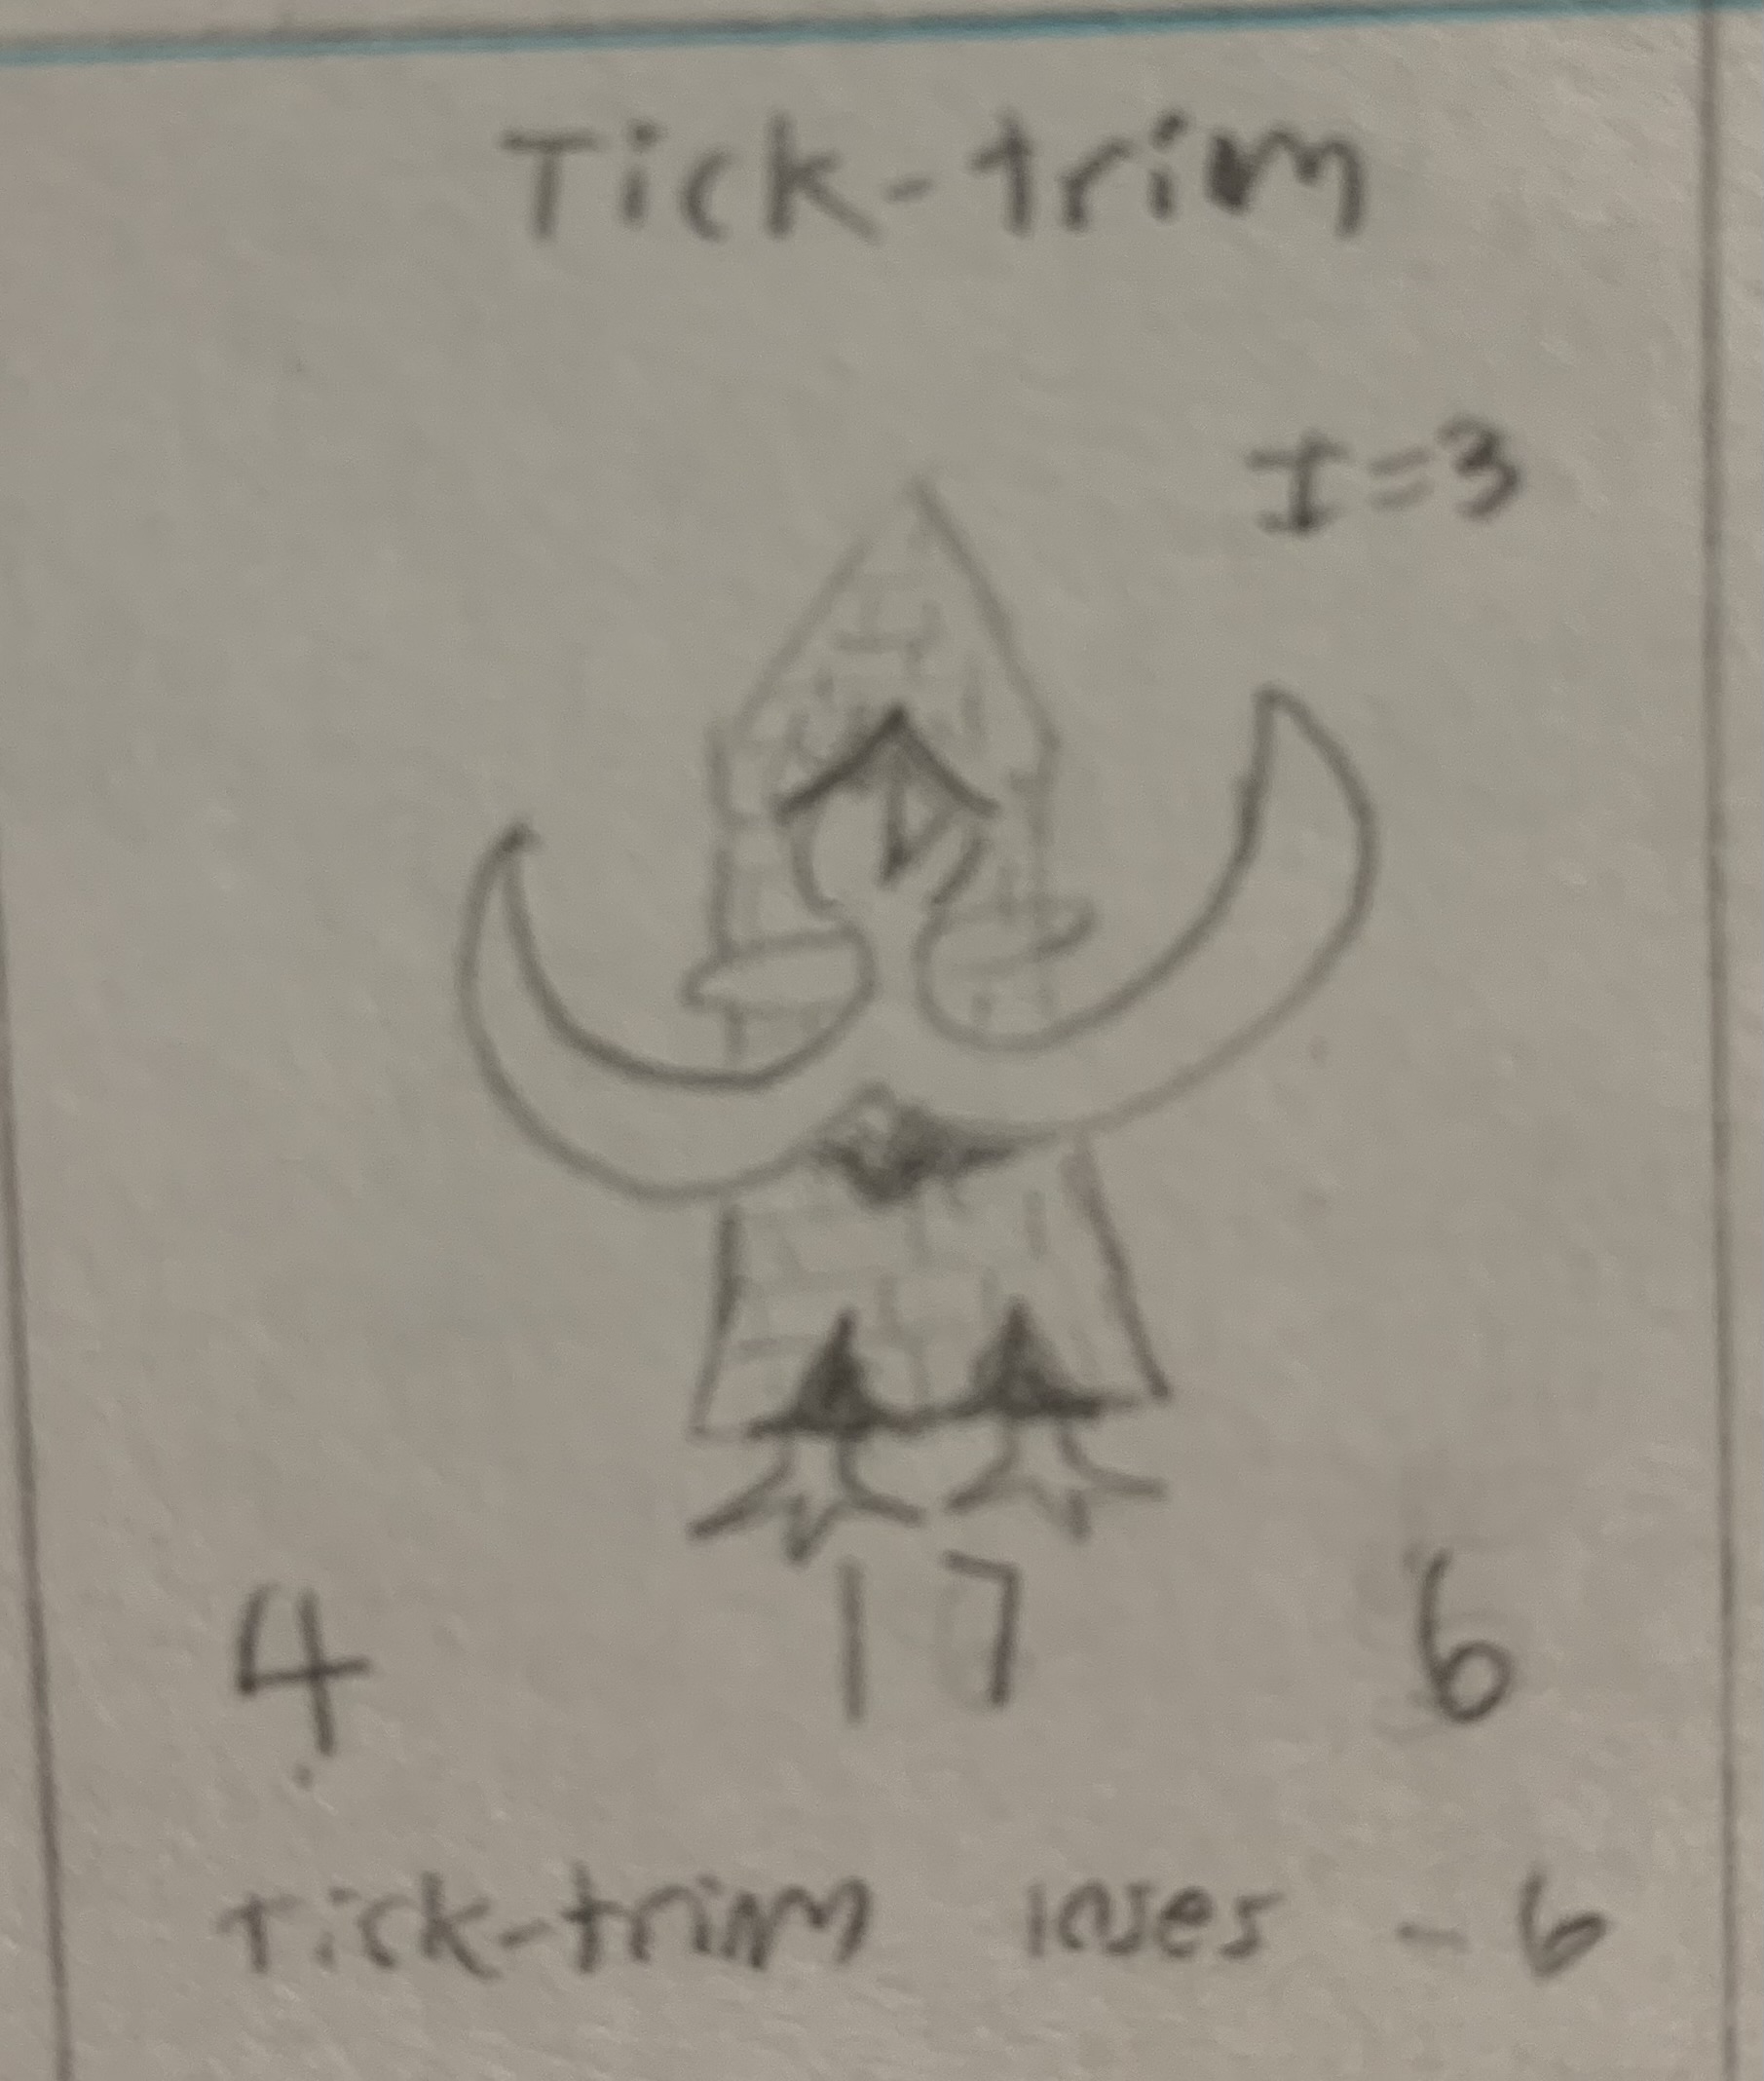 Tick-trim
I=3
4 17 6
Tick-trim loses -6